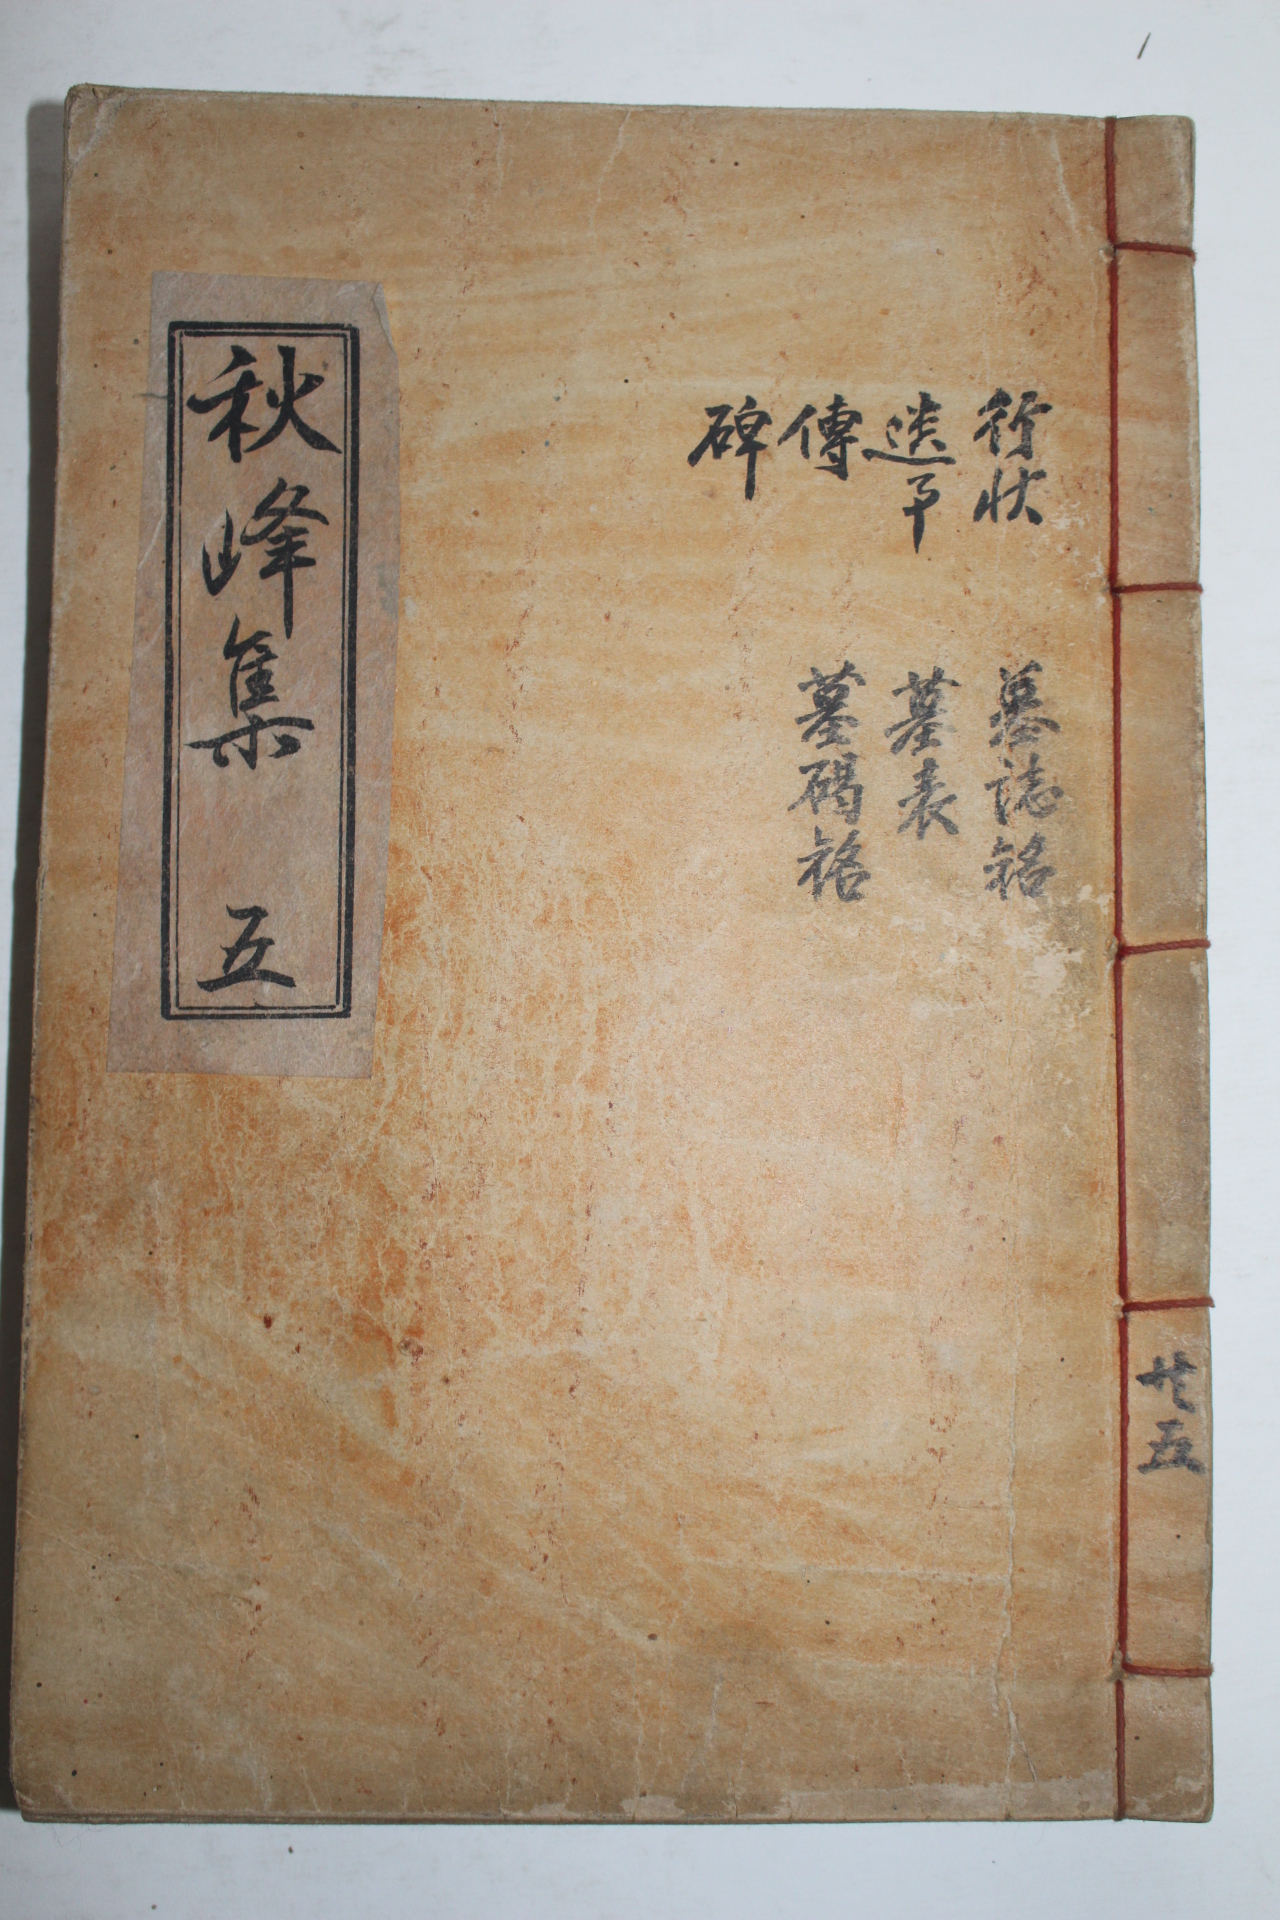 秋峰集 五
行状
遺事
傳
碑
墓誌銘
墓表
墓碣銘
共五